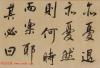 亦憂退
亦憂然
則何時
而樂耶
其必曰